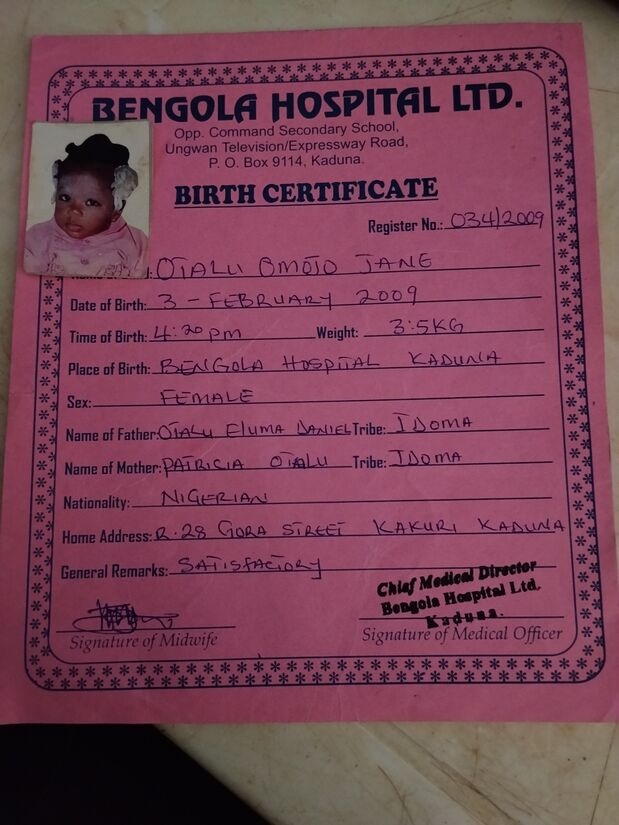 BENGOLA HOSPITAL LTD.
Opp. Command Secondary School,
Ungwan Television/Expressway Road,
P. O. Box 9114, Kaduna.
BIRTH CERTIFICATE
Register No.: 034/2009
OTALU OMOJO JANE
Date of Birth: 3 - FEBRUARY 2009
Time of Birth: 4:20pm Weight: 3:5KG
Place of Birth: BENGOLA HOSPITAL KADUNA
Sex: FEMALE
Name of Father: OTALU ELUMA DANIEL Tribe: IDOMA
Name of Mother: PATRICIA OTALU Tribe: IDOMA
Nationality: NIGERIAN
Home Address: R.28 GORA STREET KAKURI KADUNA
General Remarks: SATISFACTORY
Chief Medical Director
Bengola Hospital Ltd.
Kaduna.
Signature of Midwife Signature of Medical Officer